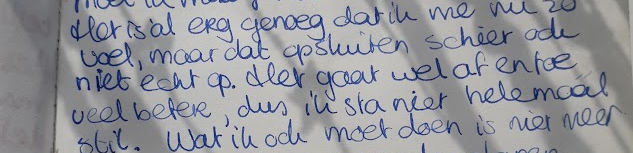 Het is al erg genoeg dat ik me nu zo
voel, maar dat opsluiten schiet ook
niet echt op. Het gaat wel af en toe
veel beter, dus ik sta niet helemaal
stil. Wat ik ook moet doen is niet meer